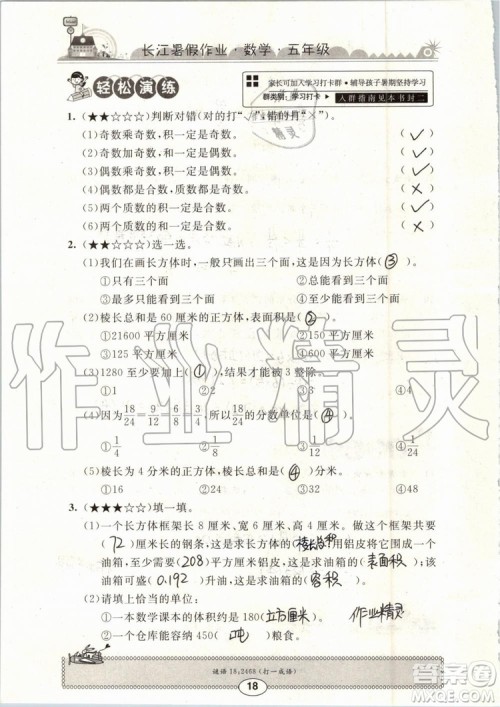 长江暑假作业·数学·五年级
轻松演练
家长可加入学习打卡群·辅导孩子暑期坚持学习
群类别：学习打卡
入群指南见本书封二
1. (★★☆☆☆)判断对错(对的打“√”,错的打“×”)。
(1)奇数乘奇数,积一定是奇数。 (✓)
(2)奇数加奇数,和一定是偶数。 (✓)
(3)偶数乘奇数,积一定是偶数。 (✓)
(4)偶数都是合数,质数都是奇数。 (×)
(5)两个质数的积一定是合数。 (✓)
(6)两个偶数的积一定是偶数。 (✓)
2. (★★☆☆☆)选一选。
(1)我们在画长方体时,一般只画出三个面,这是因为长方体( ③ )。
①只有三个面 ②总能看到三个面
③最多只能看到三个面 ④至少能看到三个面
(2)棱长总和是 60 厘米的正方体,表面积是( ② )。
①21600 平方厘米 ②150 平方厘米
③125 平方厘米 ④
(3)1280 至少要加上( ① ),结果才能被 3 整除。
①1 ②2 ③3 ④4
(4)因为18/24=9/12=6/8=3/4,所以18/24的分数单位是( ④ )。
①1/4 ②1/8 ③1/12 ④1/24
(5)棱长为 4 分米的正方体,棱长总和是( ④ )分米。
①16 ②24 ③32 ④48
3. (★★★☆☆)填一填。
(1)一个长方体框架长 8 厘米、宽 6 厘米、高 4 厘米。做这个框架共要
( 72 )厘米的钢条,这是求长方体的(棱长总和)。用铝皮做一个
油箱,至少需要(208)平方厘米的铝皮,这是求油箱的(表面积)。
该油箱可盛(0.192)升油,这是求油箱的( 容积 )。
(2)请填上恰当的单位:
①一本数学课本的体积约是 180(立方厘米)。
②一个仓库能容纳 450( 吨 )粮食。
作业精灵
谜语 18:2468(打一成语)
18
作业精灵
答案圈
MXQE.COM